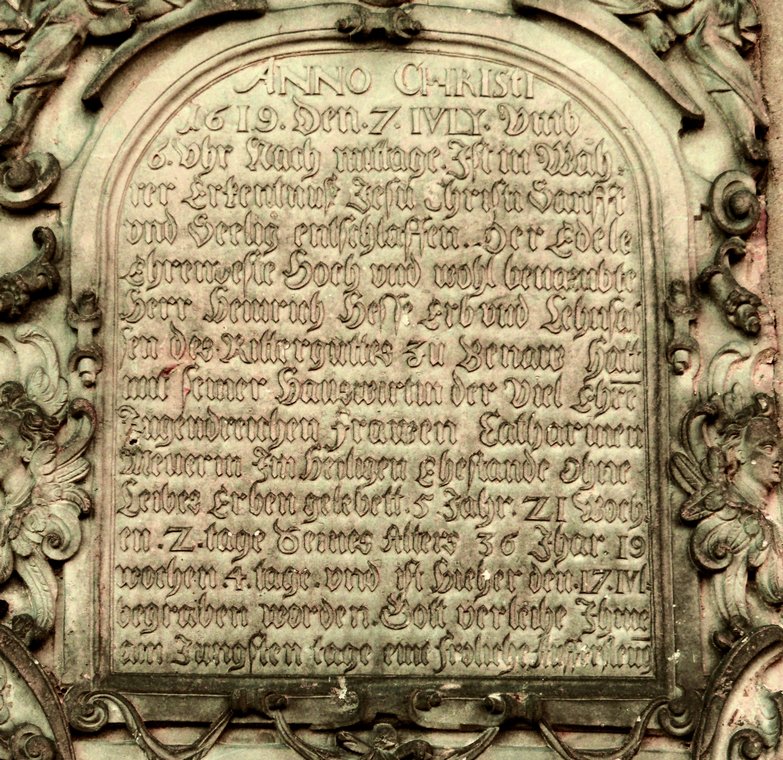 ANNO CHRISTI
1619. Den. 7. IVLY. Vmb
6. Vhr Nach mittage. Ist in Wah-
rer Erkentnus Jesu Christi Sanfft
vnd Seelig entschlaffen. Der Edele
Ehrenveste Hoch vnd wohl benambte
Herr Heinrich Hesse Erb vnd Lehnsas
sen des Ritterguttes zu Benaw hatt
mit seiner Hauswirtin der Viel Ehre
Tugendreichen Frawen Catharinen
Im Heiligen Ehestande ohne
Leibes Erben gelebett. 5 Jahr. 21 Woch
en. 2. tage Seines Alters 36 Jhar. 19
wochen 4. tage. vnd ist Hieher den. 17. IVL
begraben worden. Gott verleihe Ihme
am Jungsten tage eine froliche